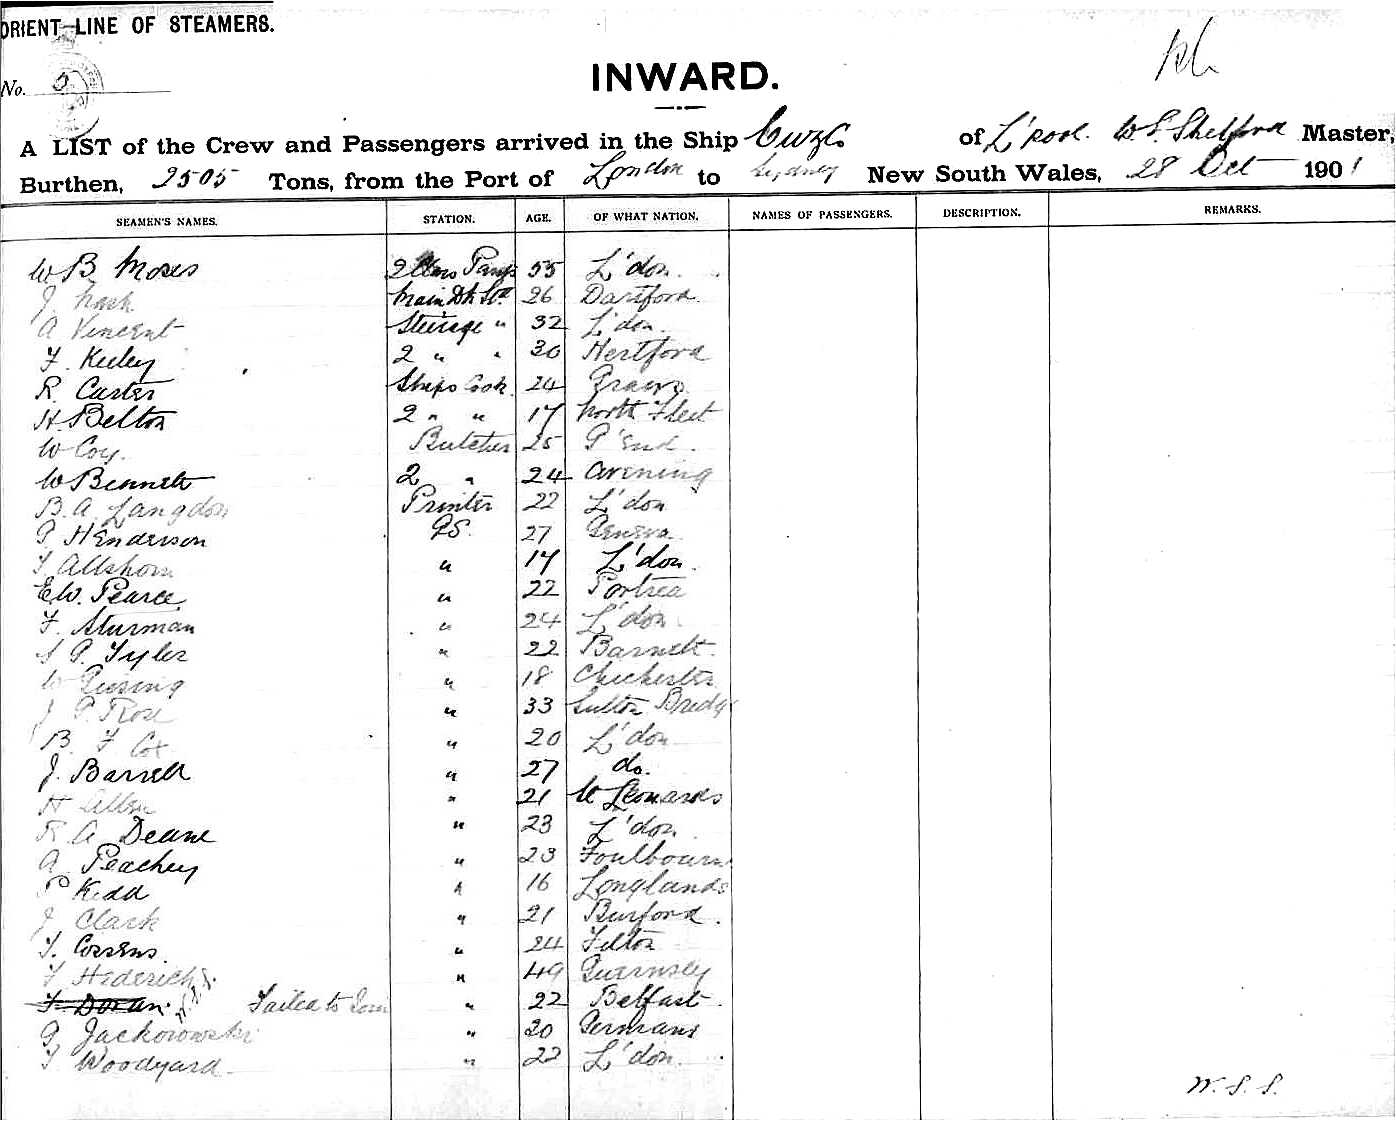 ORIENT LINE OF STEAMERS.
No.
INWARD.
A LIST of the Crew and Passengers arrived in the Ship Cuzco of L'pool. W S Shelford Master,
Burthen, 2505 Tons, from the Port of London to Sydney New South Wales, 28 Oct 1901
SEAMEN'S NAMES. STATION. AGE. OF WHAT NATION. NAMES OF PASSENGERS. DESCRIPTION. REMARKS.
W B Moses 2 Pany 55 L'don.
J. Nash Main Dk Std 26 Dartford.
A Vincent Steerage " 32 L'don.
F. Keeley 2 " " 30 Hertford
R. Carter Ships Cook. 24
H. Belton 2 " " 17 North Fleet
W Coy. Butcher 25 G'End.
W Bennett 2 " 24 Avening
B. A. Langdon Printer 22 L'don
G Henderson GS. 27 Geneva
Allshorn " 17 L'don.
E.W. Pearce " 22 Portsea
F. Sturman " 24 L'don.
S G. Tyler " 22 Barnett.
W " 18 Chichester
J G. Rose " 33 Sutton Bridg
B. F Cox " 20 L'don
J. Barrell " 27 do.
H Allen " 21 St Leonards
R A Deane " 23 L'don.
A Peachey " 23 Foulbourn
P Kidd " 16 Longlands
J Clark " 21 Burford.
T. Cossens. " 24 Filton
F Hederich " 49 Guernsey
F Doran W.S.S. Failed to Join " 22 Belfast.
G Jackorowski " 20 Germans
F Woodyard " 22 L'don.
W. S. S.